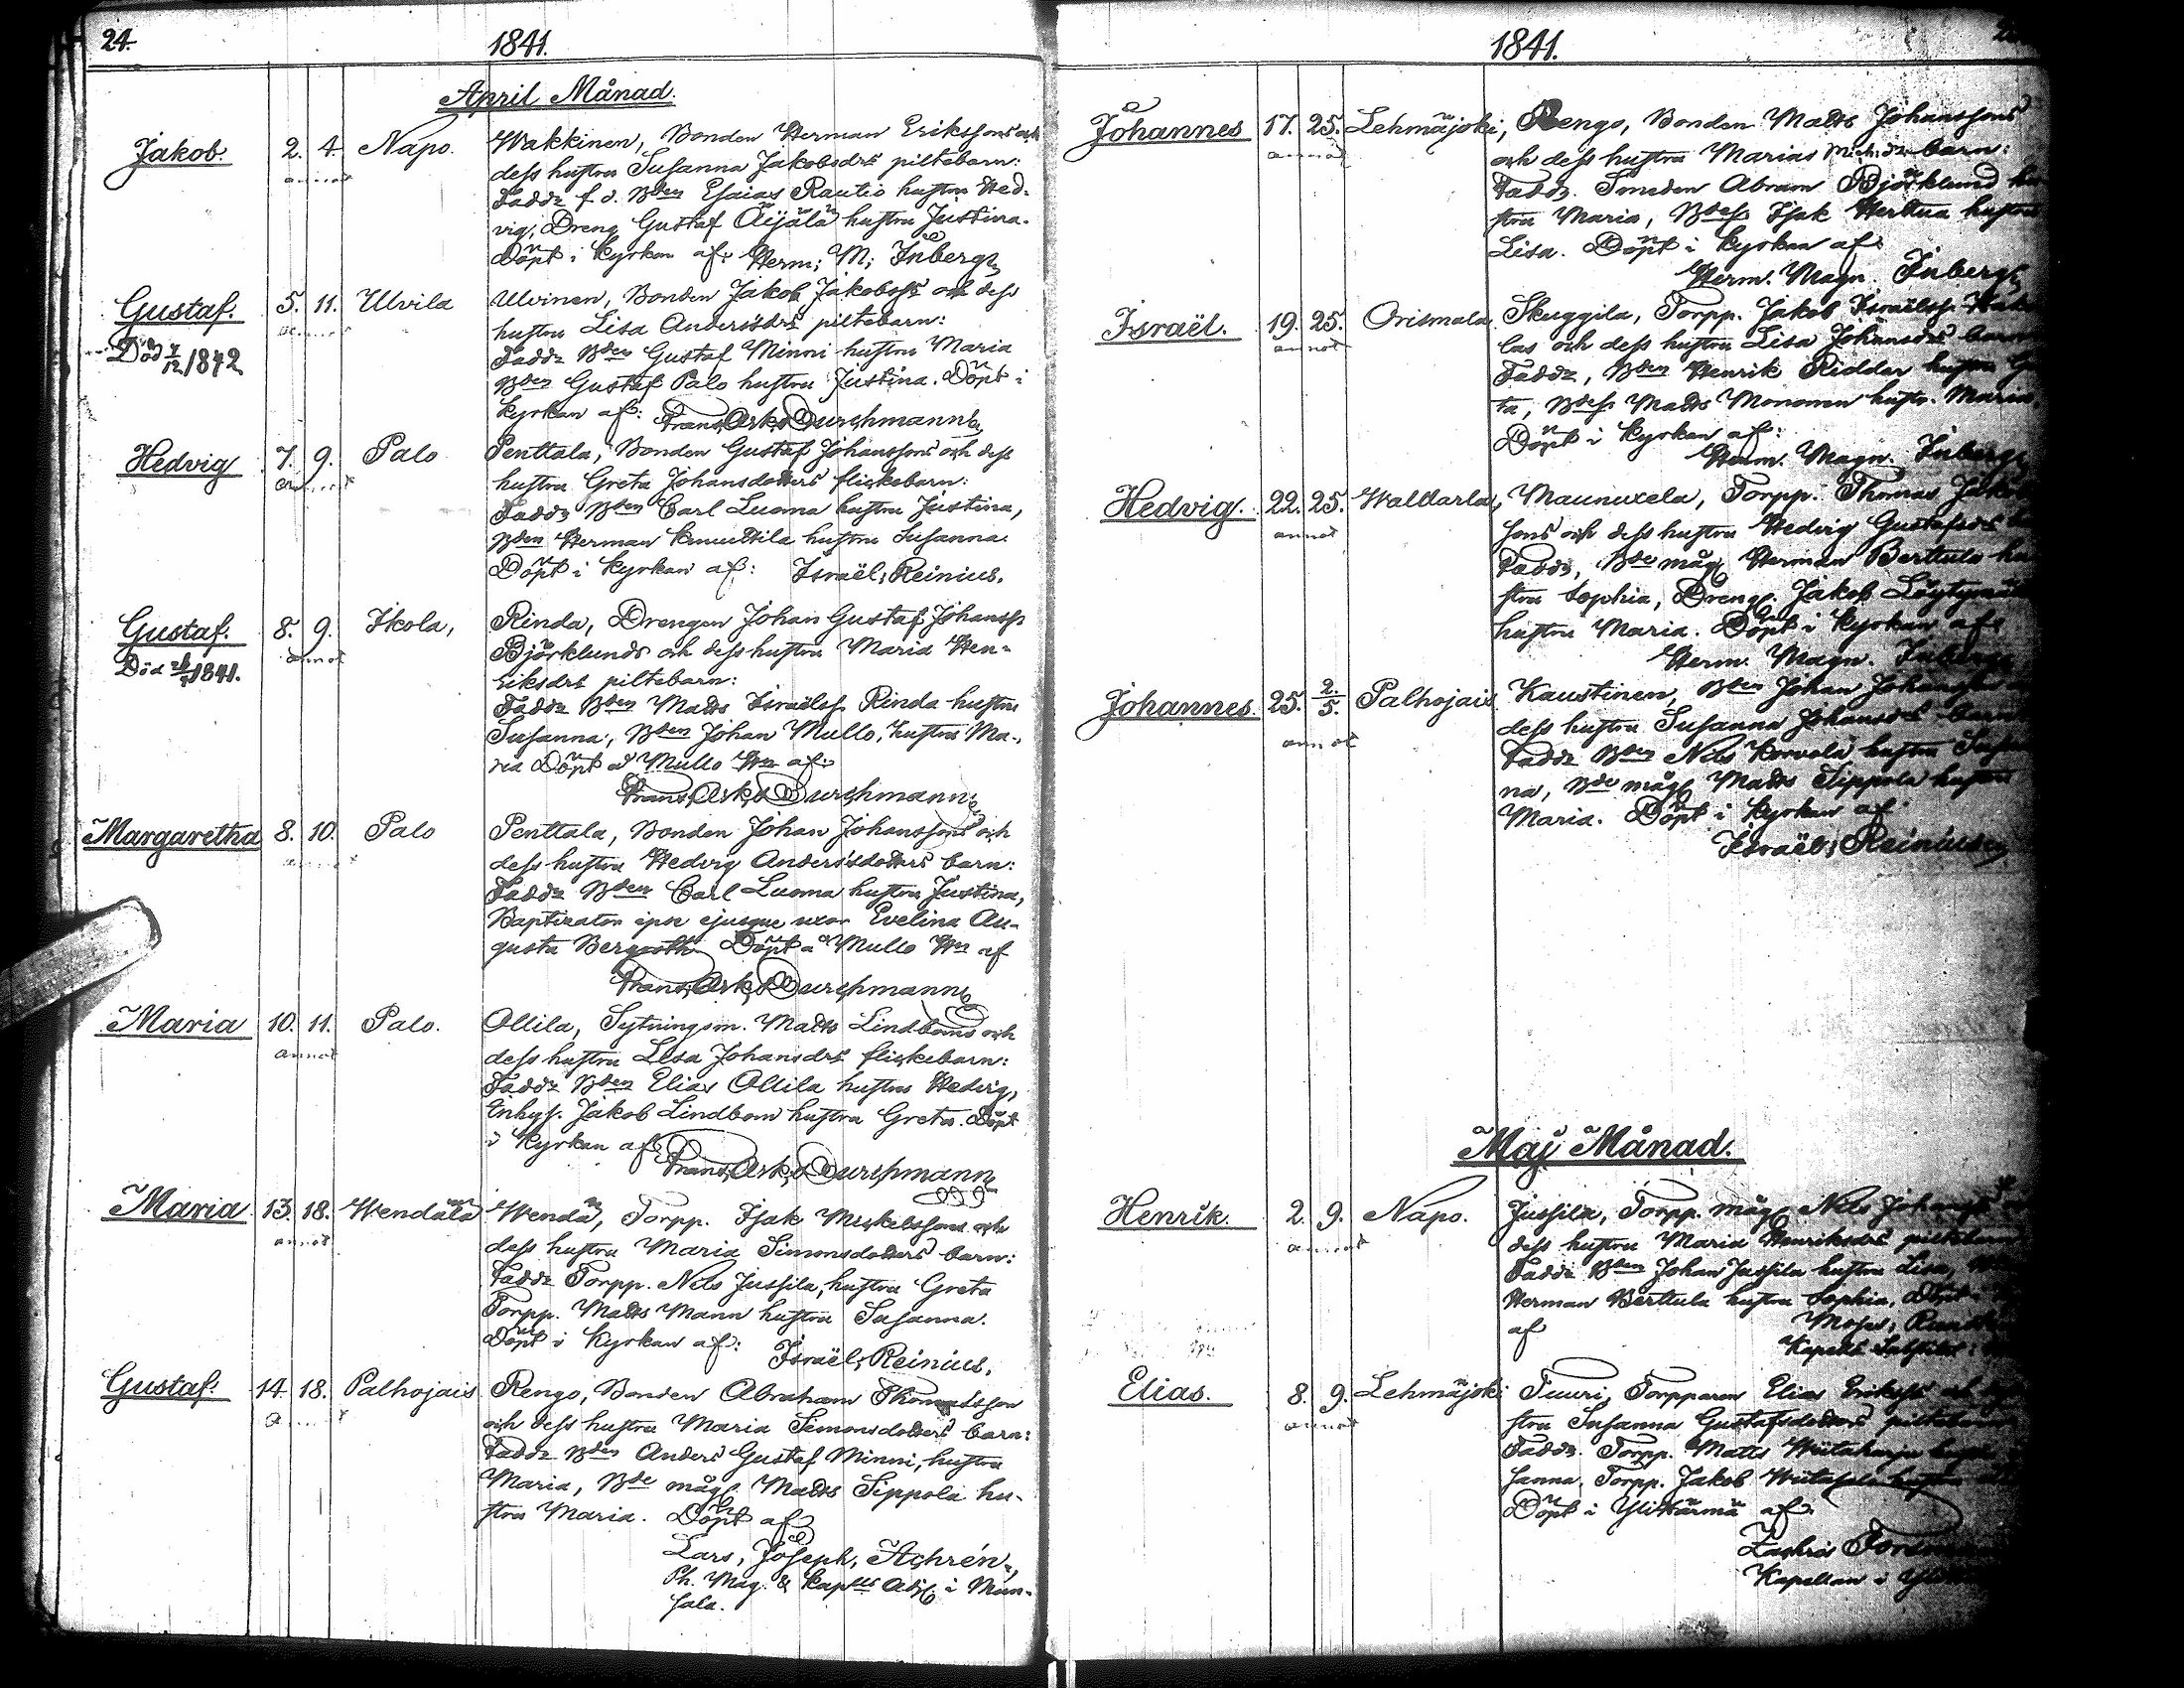 24.
1841.
April Månad.
Jakob. 2. 4. Napo. Wakkinen, Bonden Herman Erikssons och
annot
dess hustru Susanna Jakobsdrs piltebarn:
Faddr f. d. Bden Esaias Rautio hustru Hed-
vig, Dreng Gustaf Äijälä hustru Justina.
Döpt i Kyrkan af: Herm; M; Inberg
Gustaf. 5. 11. Ulvila Ulvinen, Bonden Jakob Jakobsss och dess
annot
hustru Lisa Andersdrs piltebarn:
Död 1842
Faddr Bden Gustaf Minni hustru Maria
Bden Gustaf Palo hustru Justina. Döpt i
Kyrkan af: Frans, Osk, Durchmann
Hedvig 7. 9. Palo Penttala, Bonden Gustaf Johanssons och dess
annot
hustru Greta Johansdotters flickebarn:
Faddr Bden Carl Luoma hustru Justina,
Bden Herman Knuuttila hustru Susanna.
Döpt i Kyrkan af: Israël, Reinius.
Gustaf. 8. 9. Ikola, Rinda, Drengen Johan Gustaf Johanss
annot
Björklunds och dess hustru Maria Hen-
Död 1841.
riksdrs piltebarn:
Faddr Bden Matts Israelss Rinda hustru
Susanna, Bden Johan Mullo, hustru Ma-
ria Döpt å Mullo Hn af:
Frans, Osk, Durchmann
Margaretha 8. 10. Palo Penttala, Bonden Johan Johanssons och
annot
dess hustru Hedvig Andersdotters barn:
Faddr Bden Carl Luoma hustru Justina,
Baptizator ipse ejusque uxor Evelina Au-
gusta Bergroth. Döpt å Mullo Hn af
Frans, Osk, Durchmann
Maria 10. 11. Palo. Ollila, Sytningsm. Matts Lindboms och
annot
dess hustru Lisa Johansdrs flickebarn:
Faddr Bden Elias Ollila hustru Hedvig,
Inhys. Jakob Lindbom hustru Greta. Döpt
i Kyrkan af Frans, Osk, Durchmann
Maria 13. 18. Wendälä Wendä, Torpp. Isak Mickelssons och
annot
dess hustru Maria Simonsdotters barn:
Faddr Torpp. Nils Jussila, hustru Greta
Torpp. Matts Mann hustru Susanna.
Döpt i Kyrkan af: Israël, Reinius.
Gustaf. 14. 18. Palhojais Rengo, Bonden Abraham Thomasson
annot
och dess hustru Maria Simonsdotters barn:
Faddr Bden Anders Gustaf Minni, hustru
Maria, Bde måg Matts Sippola hu-
stru Maria. Döpt af
Lars, Joseph, Achrén,
Ph. Mag. & Kaplls Adj i Mun-
sala.
1841.
Johannes 17. 25. Lehmäjoki, Rengo, Bonden Matts Johanssons
annot
och dess hustru Marias Mich:dr barn:
Faddr. Smeden Abram Björklund hu-
stru Maria, Bdess Isak Herttua hustru
Lisa. Döpt i Kyrkan af
Herm. Magn. Inberg
Israël. 19. 25. Orismala Skuggila, Torpp. Jakob Israëlss
annot
las och dess hustru Lisa Johansdrs barn
Faddr, Bden Henrik Riddar hustru
ta, Bdess Matts Mononen hustr. Maria.
Döpt i Kyrkan af:
Herm. Magn. Inberg
Hedvig. 22. 25. Waldarla, Maunuxela, Torpp. Thomas Jakob
annot
sons och dess hustru Hedvig Gustafsdrs
Faddr, Bde måg Herman Berttula hu-
stru Sophia, Dreng. Jakob
hustru Maria. Döpt i Kyrkan af
Herm. Magn. Inberg
Johannes. 25. 2/5. Palhojais Kaustinen, Bden Johan Johansson
annot
dess hustru Susanna Johansdrs barn
Faddr Bden Nils Korvola hustru
na, Bde måg Matts Sippola hustru
Maria. Döpt i Kyrkan af
Israël, Reinius
Maj Månad.
Henrik. 2. 9. Napo. Jussila, Torpp. måg Nils Johanss
annot
dess hustru Maria Henriksdrs piltebarn
Faddr Bden Johan Jussila hustru Lisa,
Herman Berttula hustru Sophia. Döpt
af
Kapells
Elias. 8. 9. Lehmäjoki Tuuri, Torpparen Elias Erikss och
annot
stru Susanna Gustafsdotters piltebarn
Faddr. Torpp. Matts
sanna, Torpp. Jakob
Döpt i Ylihärmä af
Kapellan i